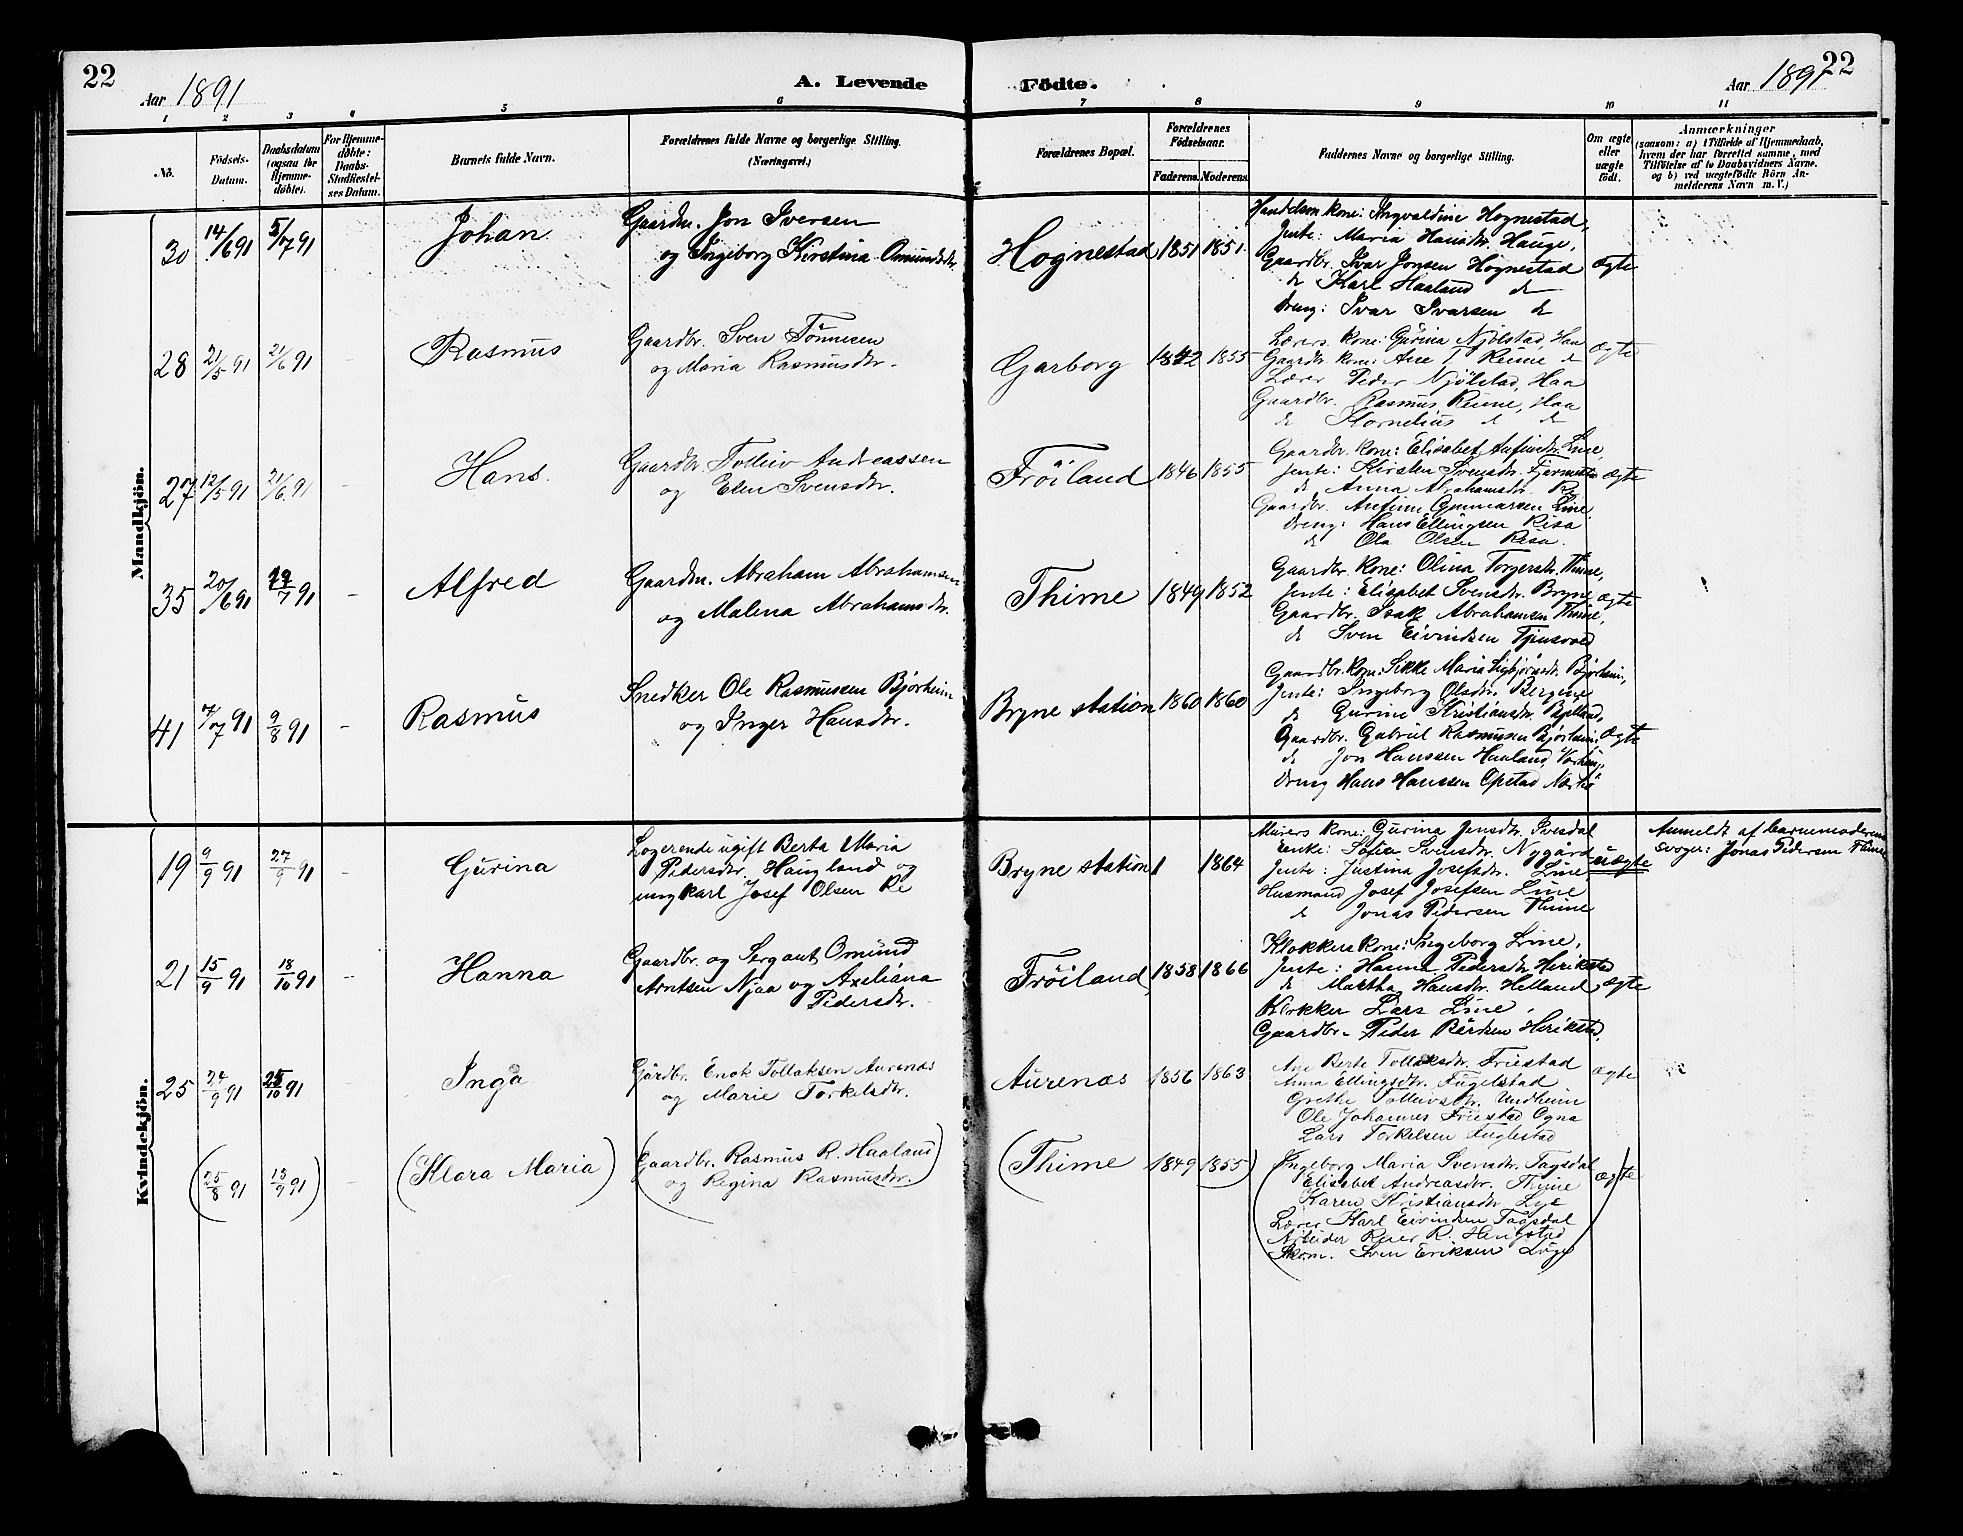 22
Aar 1891
A. Levende
Födte.
Aar 1891
22
1 2 3 4 5 6 7 8 9 10 11
No.
Födsels-
Datum.
Daabsdatum
(ogsaa for
Hjemme-
döbte).
For Hjemme-
döbte:
Daabs-
Stadfæstel-
ses Datum.
Barnets fulde Navn.
Forældrenes fulde Navne og borgerlige Stilling.
(Næringsvei.)
Forældrenes Bopæl.
Forældrenes
Födselsaar.
Faderens. Moderens.
Faddernes Navne og borgerlige Stilling.
Om ægte
eller
uægte
født.
Anmærkninger
(saasom: a) i Tilfælde af Hjemmedaab,
hvem der har forrettet samme, med
Tilföielse af to Daabsvidners Navne,
og b) ved uægtefødte Börn An-
melderens Navn m. V.)
Mandkjön.
30 14/6 91 5/7 91
Johan
Gaardm. Jon Iversen
og Ingeborg Kirstina Omundsdtr
Hognestad 1851 1851
Handelsm kone: Ingvaldine Hognestad,
Jente: Maria Hansdtr. Hauge,
Gaardbr. Ivar Jonsen Hognestad
do Karl Haaland do
Dreng: Ivar Ivarsen do
ægte
28 21/5 91 21/6 91
Rasmus
Gaardbr. Sven Tönnesen
og Maria Rasmusdtr.
Garborg 1842 1855
Lærers kone: Gurina Njölstad, Haa
Gaardbr. kone: Ane T. Reime do
Lærer Peder Njölstad, Haa
Gaardbr. Rasmus Reime, Haa
do Kornelius do do
ægte
27 12/5 91 21/6 91
Hans.
Gaardbr. Tolleiv Andreassen
og Elen Svensdtr.
Fröiland 1846 1855
Gaardbr. kone: Elisabet Anfindtr. Line,
Jente: Kirsten Svensdtr.
do Anna Abrahamsdtr. Re
Gaardbr. Anfinn Gunnarsen Line
Dreng: Hans Ellingsen Risa
do Ola Olsen Risa.
ægte
35 20/6 91 /7 91
Alfred
Gaardm. Abraham Abrahamsen
og Malena Abrahamsdtr.
Thime 1849 1852
Gaardbr. kone: Olina Torgersdtr. Thime,
Jente: Elisabet Svensdtr. Bryne
Gaardbr. Isak Abrahamsen Thime,
do Sven Eivindsen Tjensvold
ægte
41 7/7 91 9/8 91
Rasmus
Snedker Ole Rasmussen Bjorheim
og Inger Hansdtr.
Bryne station 1860 1860
Gaardbr. kone: Sikke Maria Sigbjörnsdtr. Björheim,
Jente: Ingeborg Olsdtr. Bergene
do Gurine Kristiansdtr.
Gaardbr. Gabriel Rasmussen Björheim,
do Jon Hanssen Haaland, Varhaug,
Dreng Hans Hanssen Opstad Nærbö
ægte
Kvindekjön.
19 9/9 91 27/9 91
Gurina
Logerende ugift Berta Maria
Pedersdtr. Haugland og
ungkarl Josef Olsen Re
Bryne station 1 1864
Murers kone: Gurina Jensdtr. Ivesdal
Enke: Sofie Svensdtr. Nygård
Jente: Justina Josefsdtr. Line
Husmand Josef Josefsen Line
do Jonas Pedersen Thime
uægte
Anmeldt af barnemoderens
svoger: Jonas Pedersen Thime
21 15/9 91 18/10 91
Hanna
Gaardbr. og Sergant Omund
Arntsen Njaa og Axeliana
Pedersdtr.
Fröiland 1858 1866
Klokkers kone: Ingeborg Line,
Jente: Hanna Pedersdtr. Herikstad
do Martha Hansdtr. Helland
Klokker Lars Line,
Gaardbr. Peder Bårdsen Herikstad.
ægte
25 24/9 91 25/10 91
Inga
Gårdbr. Enok Tollaksen Aurenæs
og Marie Torkelsdtr.
Aurenæs 1856 1863
Ane Berte Tollaksdtr. Friestad
Anna Ellingsdtr. Fuglestad
Grethe Tolleivsdtr. Undheim
Ole Johannes Friestad Ogna
Lars Torkelsen Fuglestad
ægte
(25/8 91 13/9 91)
(Klara Maria)
(Gaardbr. Rasmus R. Haaland
og Regina Rasmusdtr.)
(Thime 1849 1855)
(Ingeborg Maria Svensdtr. Tagsdal
Elisabet Andreasdtr. Thime
Karen Kristiansdtr. Lye
Lærer Karl Eivindsen Tagsdal
Arbeider Reier R. Haugstad
Skom. Sven Eriksen Lye)
ægte